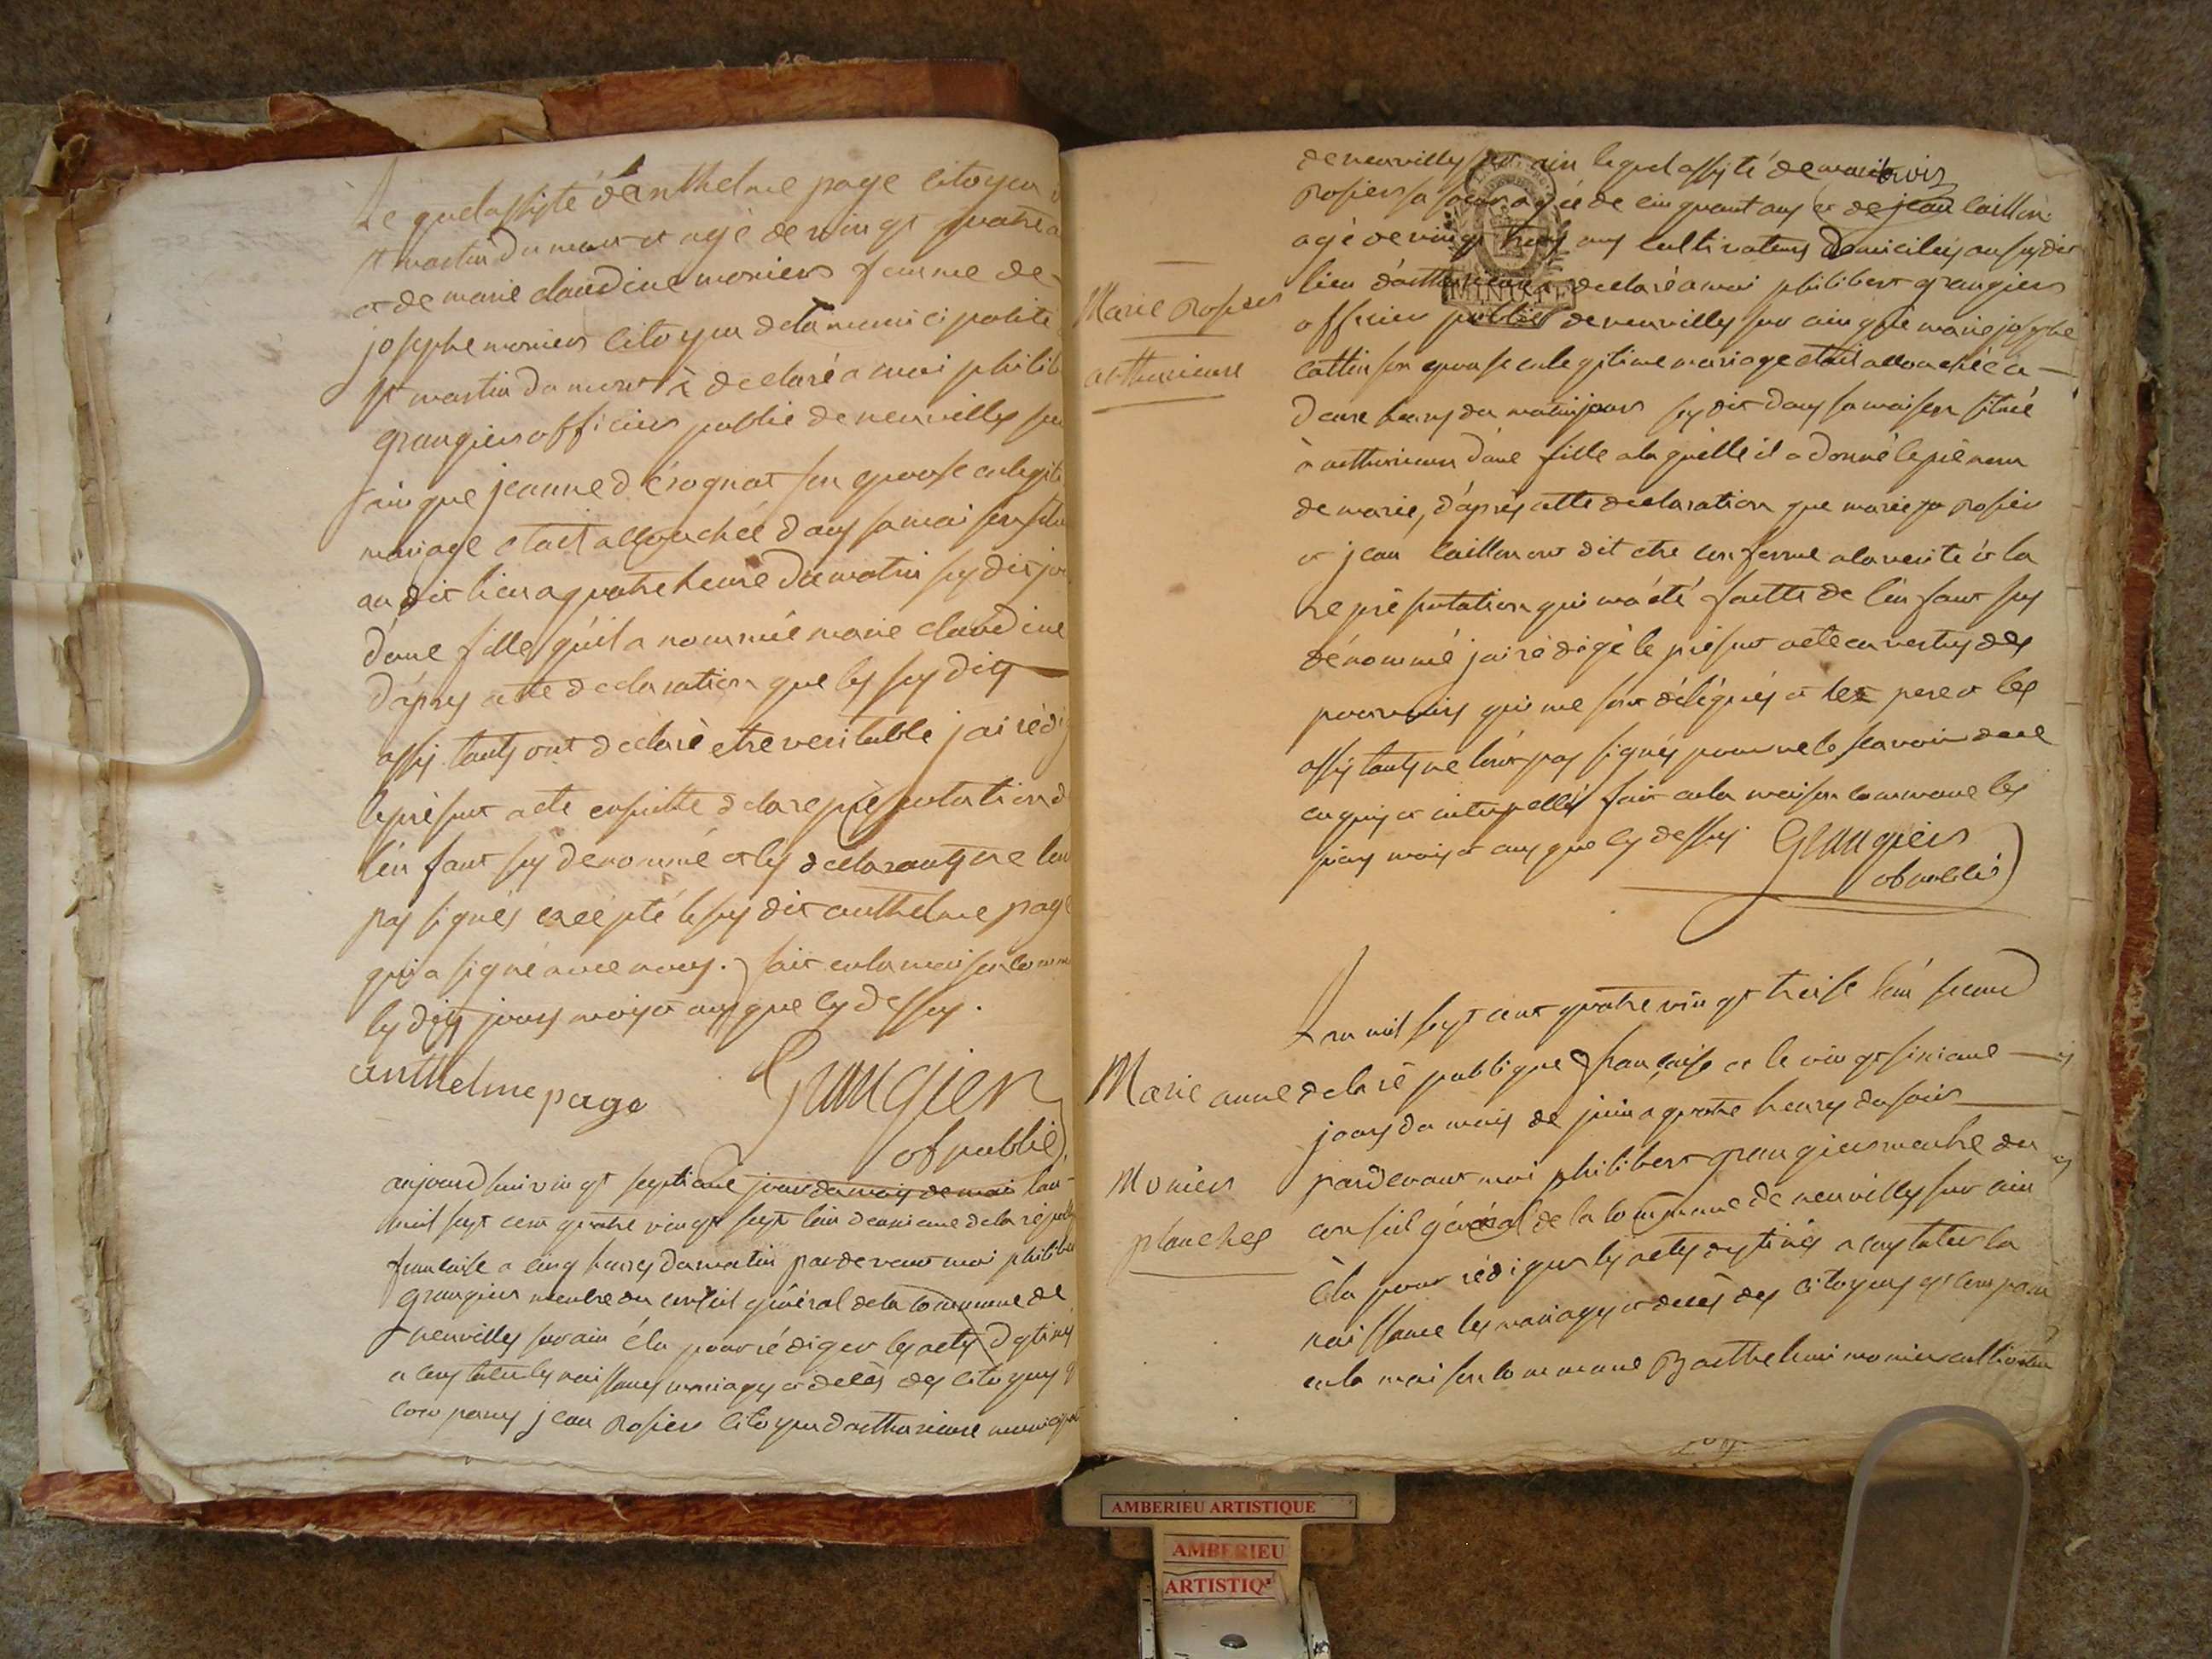 Le quel assisté d'anthelme page citoyen
st martin du mont et agé de vingt quatre
et de marie claudine moniers femme de
josephe moniers citoyen de la municipalité
st martin du mont à déclaré a moi philib
grangiers officiers public de neuville sur
ain que jeanne d'érognat son epouse en legiti
mariage etait accouchée dans sa maison situ
au dit lieu a quatre heure du matin susdit jou
d'une fille qu'il a nommée marie claudine
d'apres cette declaration que les susdits
assistants ont declaré etre veritable j'ai rédig
le présent acte ensuitte de la représentation d
l'enfant sus denommé et les declarants ne l'on
pas signés excépté le susdit anthelme page
qui a signé avec nous. fait en la maison comm
lesdits jours mois et ans que cy dessus.
anthelme page Grangier
of public
aujourd'hui vingt septieme jour du mois de mai l'an
mil sept cent quatre vingt sept l'an deuxieme de la répub
francaise a cinq heures du matin pardevant moi philibe
grangiers membre du conseil général de la commune de
neuville sur ain élu pour rédiger les actes destinés
a constater les naissances mariages et décès des citoyens
comparus jean Rosiers citoyen d'artturieure municipal
de neuville sur ain lequel assisté de marie
Rosiers sa soeur agée de cinquant ans et de jean caillon
agé de vingt ans cultivateurs domiciliés au susdit
lieu declaré a moi philibert grangiers
officier public de neuville sur ain que marie josephe
cottin son epouse en legitime mariage etait accouchée a
deux heures du matin jours susdit dans sa maison située
à d'une fille a laquelle il a donné le prénom
de marie, d'après cette declaration que marie Rosiers
et jean caillon ont dit etre conforme a la verité et la
représentation qui m'a été faitte de l'enfant sus
dénommé j'ai rédigé le présent acte en vertus des
pouvoirs qui me sont délégués et le pere et les
assistants ne l'ont pas signés pour ne le scavoir de ce
enquis et interpellés fait en la maison commune les
jours mois et ans que cy dessus. Grangiers
of public
Marie Rosiers
MINUTE
L'an mil sept cent quatre vingt treise l'an second
de la république francaise et le vingt sixieme
jours du mois de juin a quatre heures du soir
pardevant moi philibert grangiers membre du
conseil général de la commune de neuville sur ain
élu pour rédiger les actes destinés a constater la
naissance les mariages et décès des citoyens est comparu
en la maison commune Barthelemi moniers cultivateur
Marie anne
Moniers
planches
AMBERIEU ARTISTIQUE
AMBERIEU
ARTISTIQ